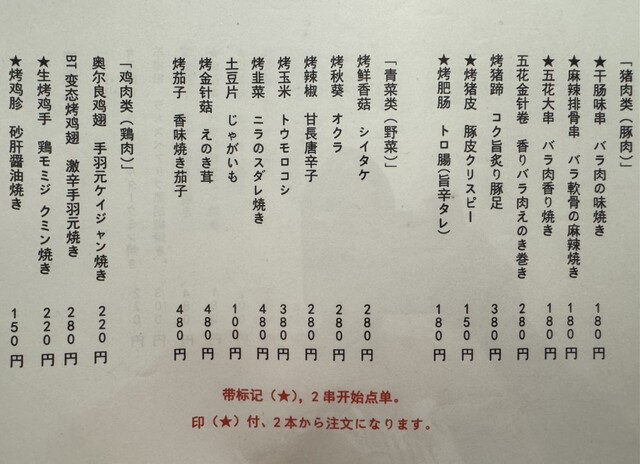 「猪肉类（豚肉）」
★干肠味串　バラ肉の味焼き　180円
★麻辣排骨串　バラ軟骨の麻辣焼き　180円
★五花大串　バラ肉香り焼き　180円
五花金针卷　香りバラ肉えのき巻き　280円
烤猪蹄　コク旨炙り豚足　380円
★烤猪皮　豚皮クリスピー　150円
★烤肥肠　トロ腸（旨辛タレ）　180円
「青菜类（野菜）」
烤鲜香菇　シイタケ　280円
烤秋葵　オクラ　280円
烤辣椒　甘長唐辛子　280円
烤玉米　トウモロコシ　380円
烤韭菜　ニラのスダレ焼き　480円
土豆片　じゃがいも　100円
烤金针菇　えのき茸　480円
烤茄子　香味焼き茄子　480円
「鸡肉类（鶏肉）」
奥尔良鸡翅　手羽元ケイジャン焼き　220円
BT 变态烤鸡翅　激辛手羽元焼き　280円
★生烤鸡手　鶏モミジ クミン焼き　220円
★烤鸡胗　砂肝醤油焼き　150円
带标记（★），2串开始点单。
印（★）付、2本から注文になります。